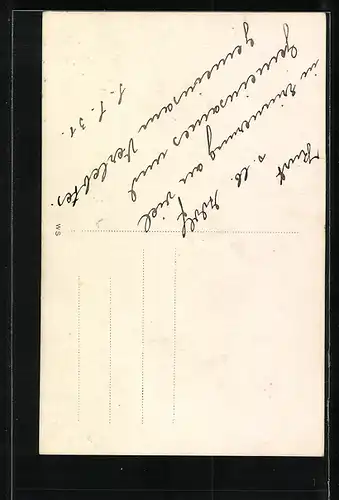 Kurt s. lb. Adolf
in Erinnerung an viel
Gemeinsames und
gemeinsam Verlebtes.
1.1.31.
WS